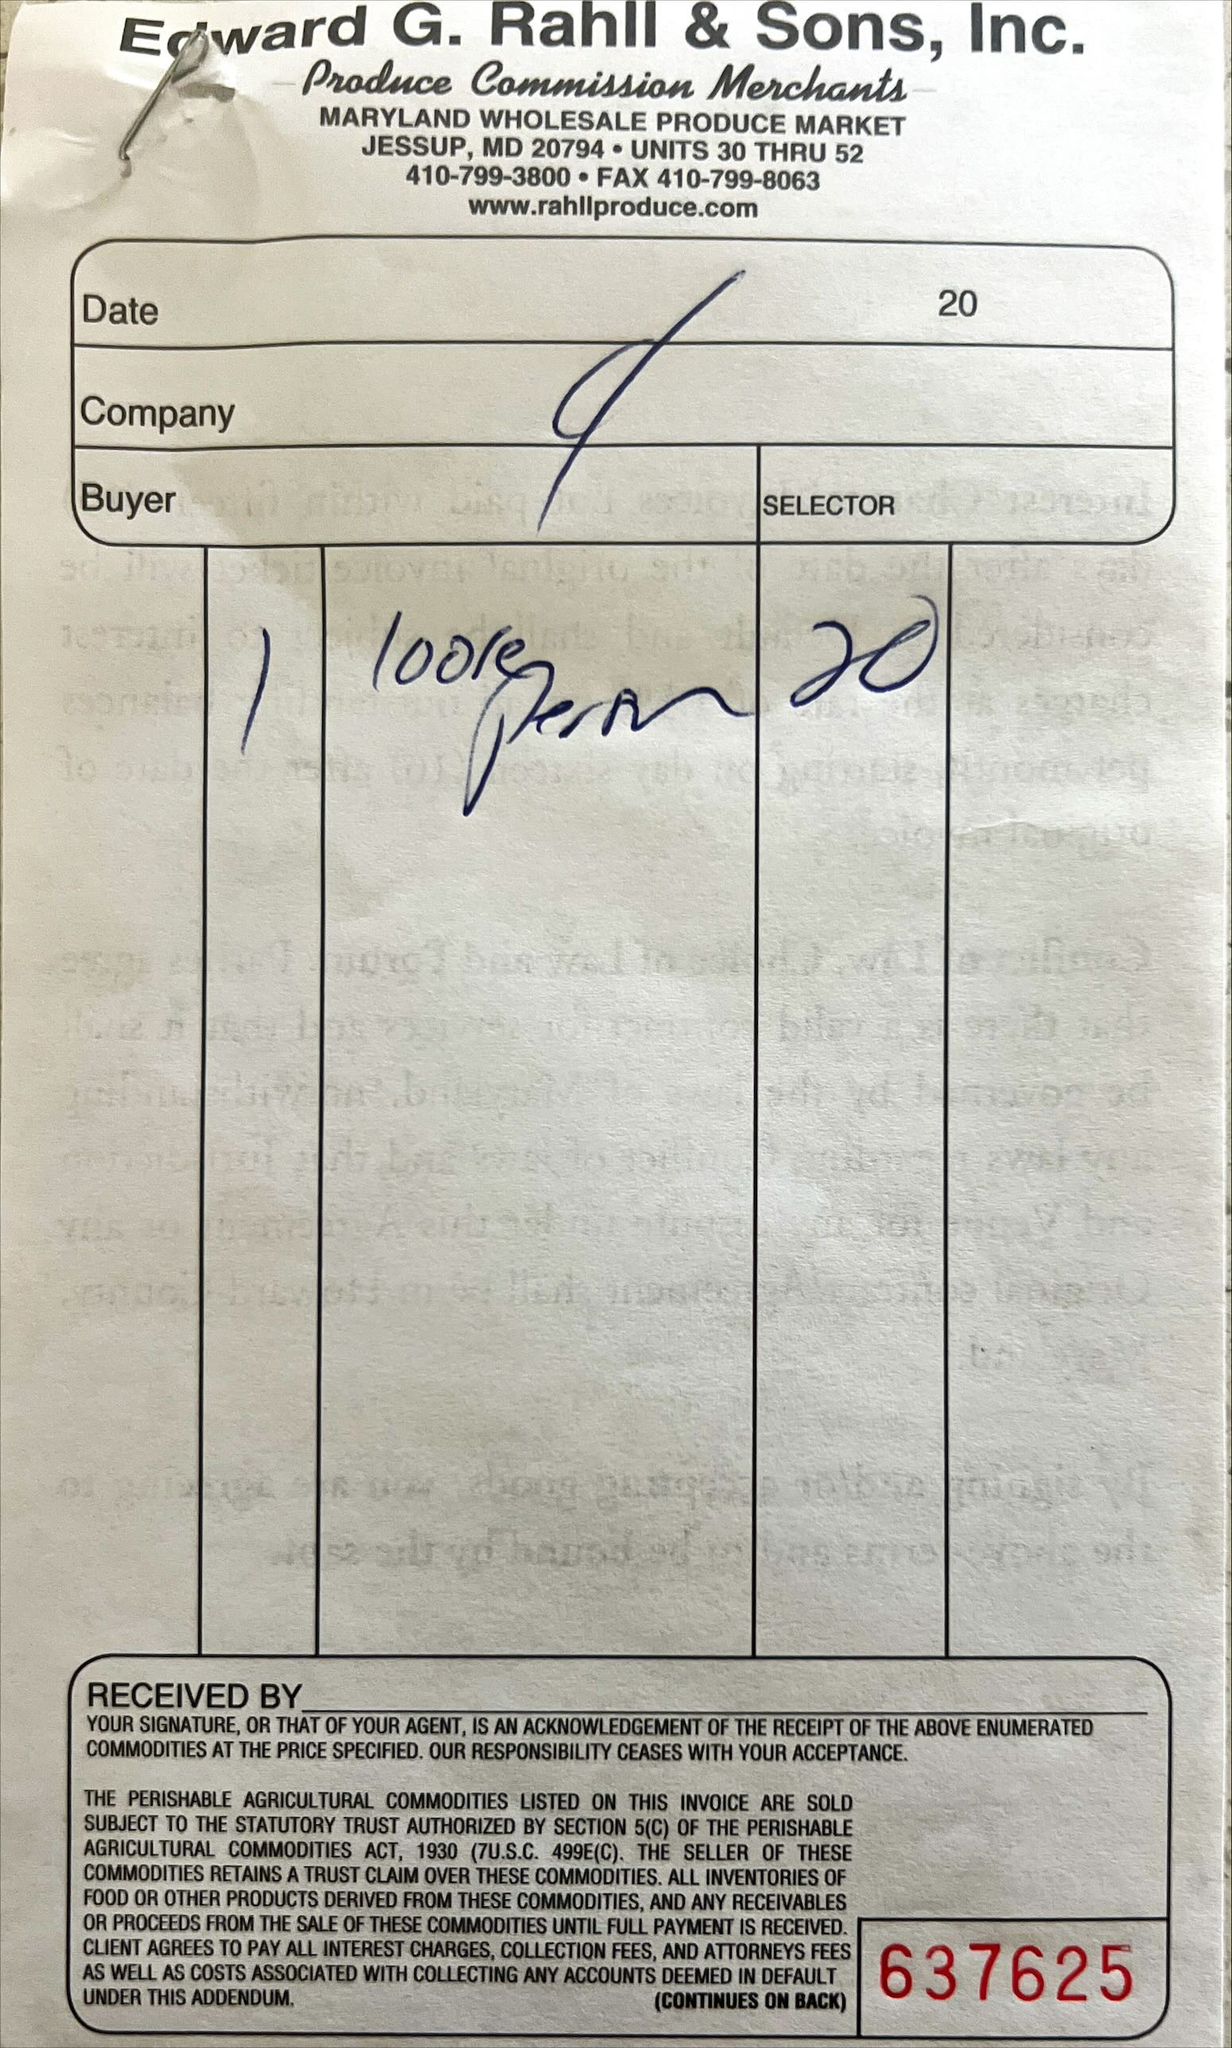 Edward G. Rahll & Sons, Inc.
Produce Commission Merchants
MARYLAND WHOLESALE PRODUCE MARKET
JESSUP, MD 20794 • UNITS 30 THRU 52
410-799-3800 • FAX 410-799-8063
www.rahllproduce.com
Date 20
Company
Buyer SELECTOR
1 loose 20
RECEIVED BY
YOUR SIGNATURE, OR THAT OF YOUR AGENT, IS AN ACKNOWLEDGEMENT OF THE RECEIPT OF THE ABOVE ENUMERATED
COMMODITIES AT THE PRICE SPECIFIED. OUR RESPONSIBILITY CEASES WITH YOUR ACCEPTANCE.
THE PERISHABLE AGRICULTURAL COMMODITIES LISTED ON THIS INVOICE ARE SOLD
SUBJECT TO THE STATUTORY TRUST AUTHORIZED BY SECTION 5(C) OF THE PERISHABLE
AGRICULTURAL COMMODITIES ACT, 1930 (7U.S.C. 499E(C). THE SELLER OF THESE
COMMODITIES RETAINS A TRUST CLAIM OVER THESE COMMODITIES. ALL INVENTORIES OF
FOOD OR OTHER PRODUCTS DERIVED FROM THESE COMMODITIES, AND ANY RECEIVABLES
OR PROCEEDS FROM THE SALE OF THESE COMMODITIES UNTIL FULL PAYMENT IS RECEIVED.
CLIENT AGREES TO PAY ALL INTEREST CHARGES, COLLECTION FEES, AND ATTORNEYS FEES
AS WELL AS COSTS ASSOCIATED WITH COLLECTING ANY ACCOUNTS DEEMED IN DEFAULT
UNDER THIS ADDENDUM. (CONTINUES ON BACK)
637625